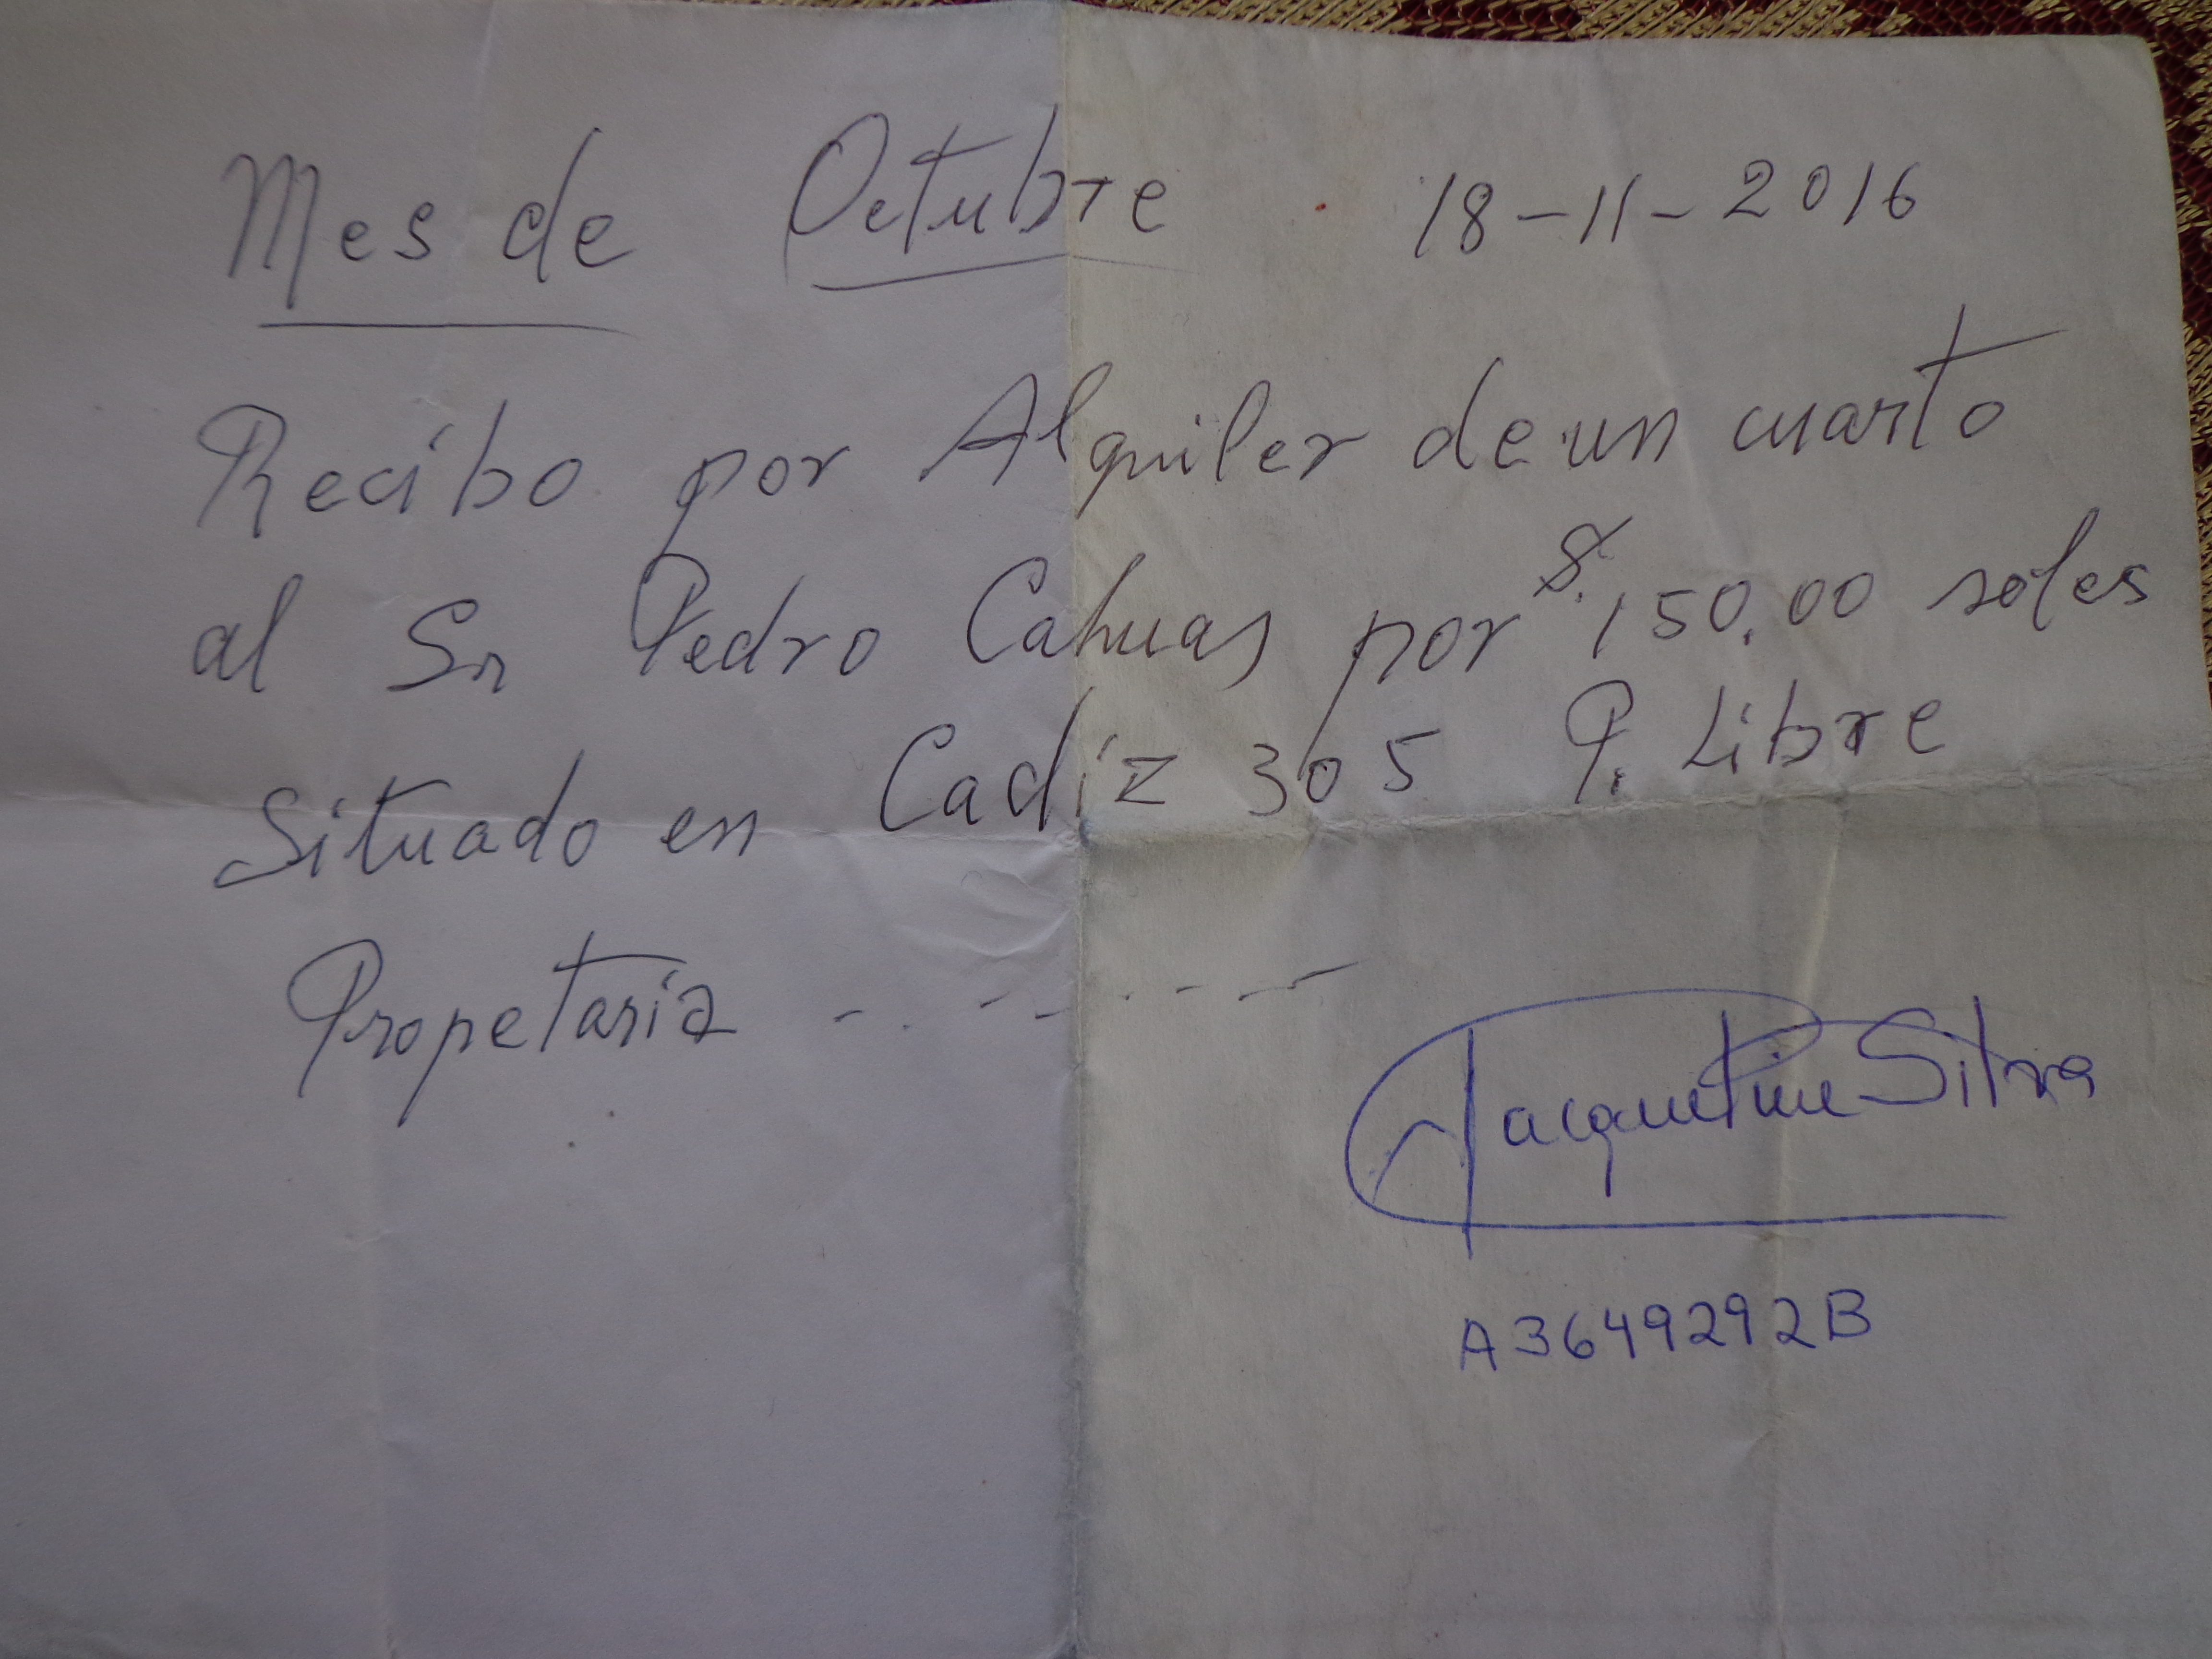 Mes de Octubre 18-11-2016
Recibo por Alquiler de un cuarto
al Sr Pedro Cahuas por S. 150.00 soles
Situado en Cadiz 305 P. Libre
Propetaria
Jacqueline Silva
A3649292B